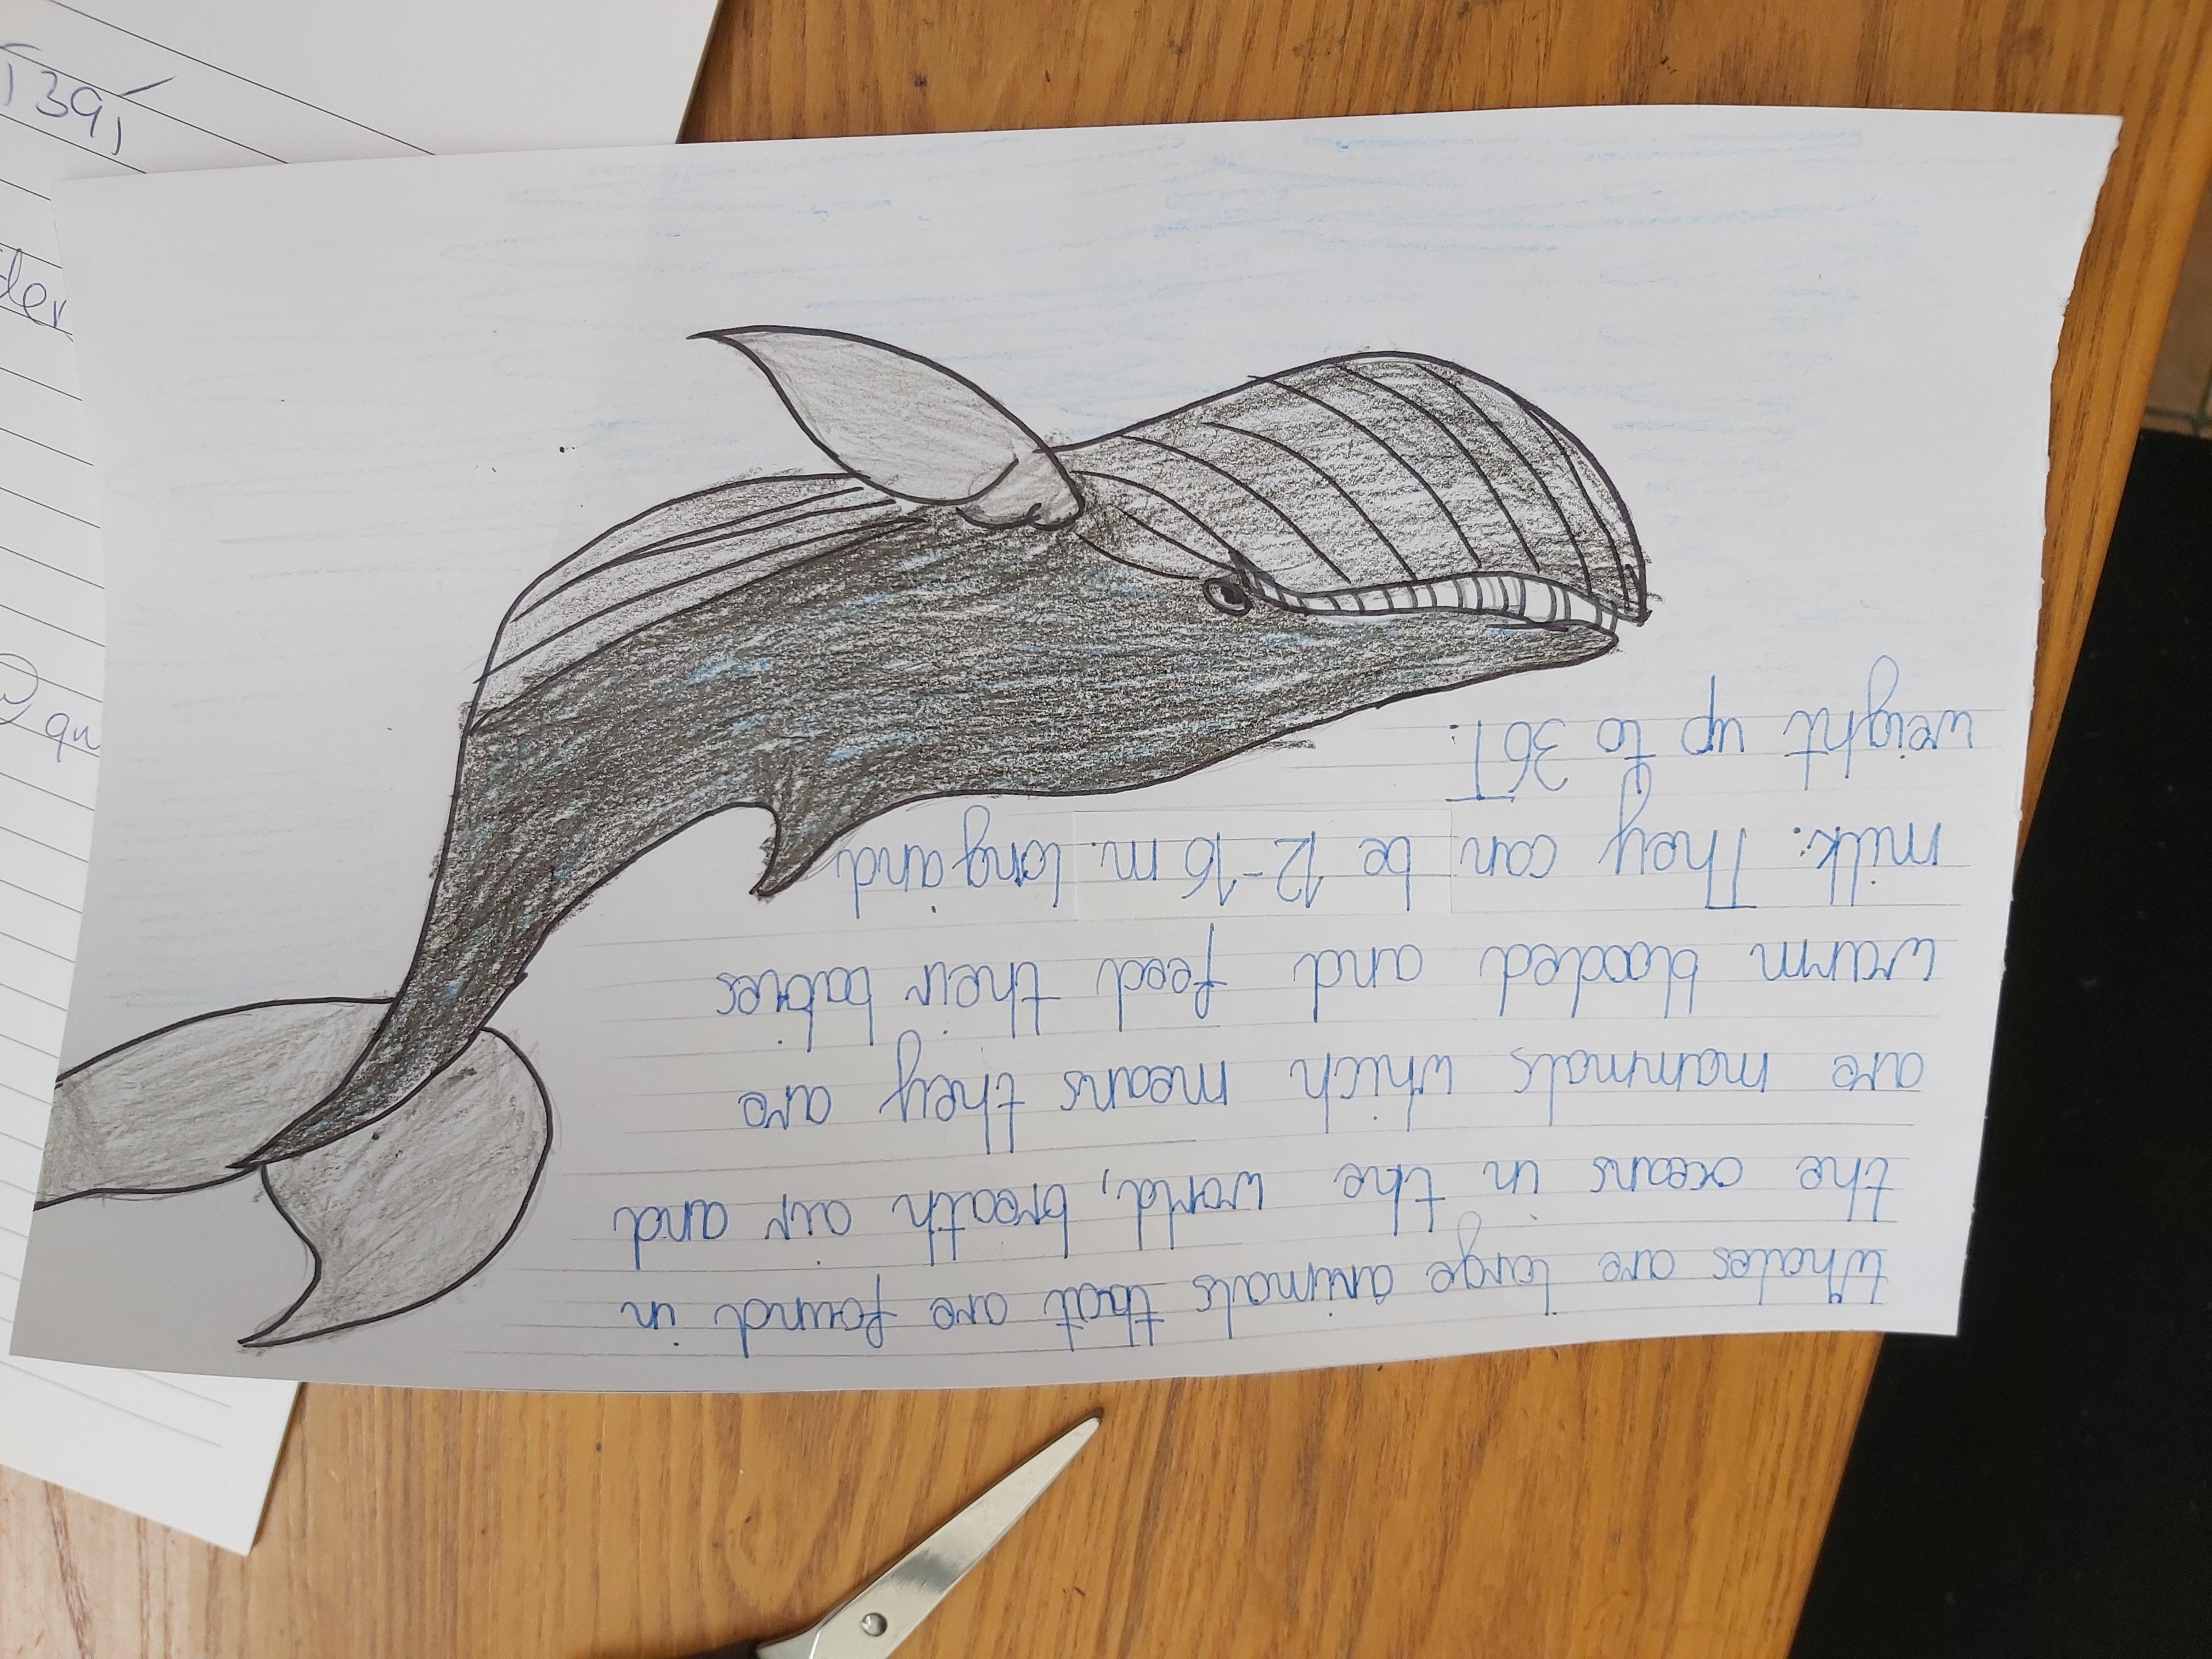 Whales are large animals that are found in
the oceans in the world, breath air and
are mammals which means they are
warm blooded and feed their babies
milk. They can be 12-16 m. long and
weight up to 36T.
139,
der
qu